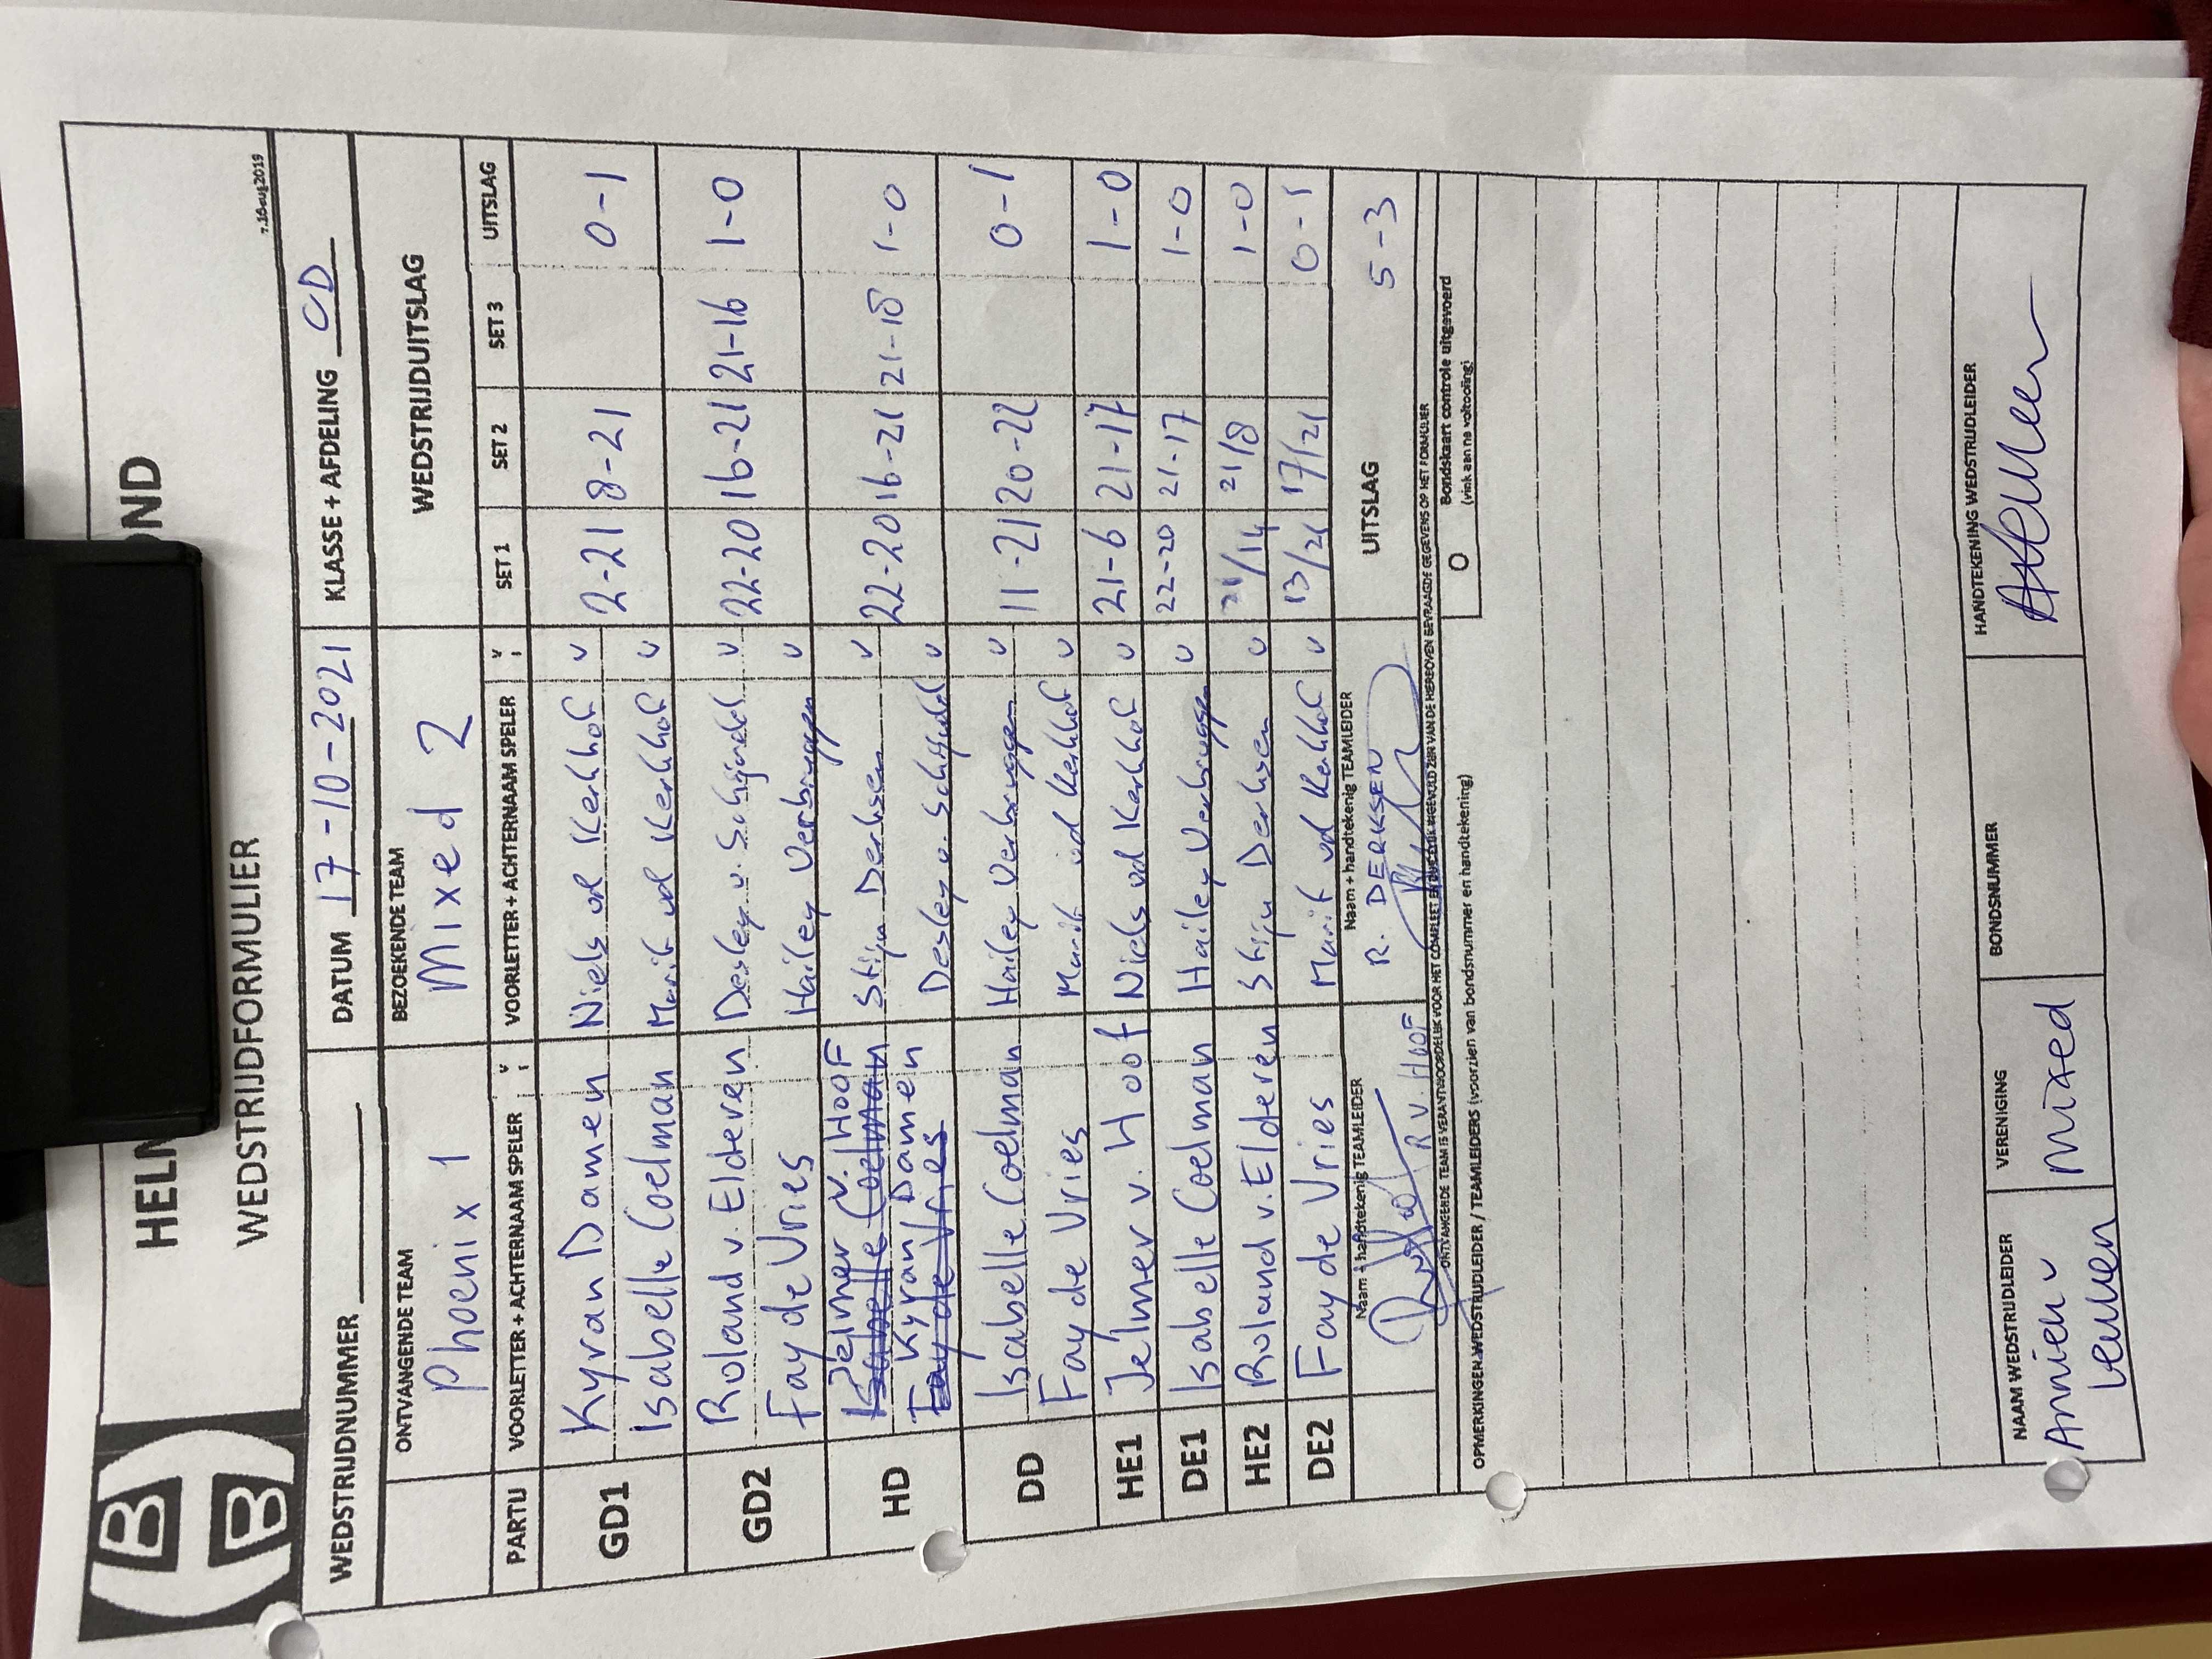 HELM OND
WEDSTRIJDFORMULIER
7.16aug2019
WEDSTRIJDNUMMER DATUM 17-10-2021 KLASSE + AFDELING CD
ONTVANGENDE TEAM BEZOEKENDE TEAM WEDSTRIJDUITSLAG
Phoenix 1 Mixed 2
PARTIJ VOORLETTER + ACHTERNAAM SPELER V VOORLETTER + ACHTERNAAM SPELER V SET 1 SET 2 SET 3 UITSLAG
GD1 Kyran Damen Niels vd Kerkhof v 2-21 8-21 0-1
Isabelle Coelman Marit vd Kerkhof v
GD2 Roland v. Elderen Desley v. Schijndel v 22-20 16-21 21-16 1-0
Fay de Vries Hailey Verbruggen v
HD Jelmer v. HOOF Stijn Derksen v 22-20 16-21 21-18 1-0
Isabelle Coelman
Kyran Damen Desley v. Schijndel v
Fay de Vries
DD Isabelle Coelman Hailey Verbruggen v 11-21 20-22 0-1
Fay de Vries Marit vd Kerkhof v
HE1 Jelmer v. Hoof Niels vd Kerkhof v 21-6 21-17 1-0
DE1 Isabelle Coelman Hailey Verbruggen v 22-20 21-17 1-0
HE2 Roland v. Elderen Stijn Derksen v 21/14 21/8 1-0
DE2 Fay de Vries Marit vd Kerkhof v 13/21 17/21 0-1
Naam + handtekenig TEAMLEIDER Naam + handtekenig TEAMLEIDER UITSLAG 5-3
R v. HOOF R. DERKSEN
ONTVANGENDE TEAM IS VERANTWOORDELIJK VOOR HET COMPLEET EN DUIDELIJK INGEVULD ZIJN VAN DE HIERBOVEN GEVRAAGDE GEGEVENS OP HET FORMULIER
O Bondskaart controle uitgevoerd
(vink aan na voltooiing)
OPMERKINGEN WEDSTRIJDLEIDER / TEAMLEIDERS (voorzien van bondsnummer en handtekening)
NAAM WEDSTRIJDLEIDER VERENIGING BONDSNUMMER HANDTEKENING WEDSTRIJDLEIDER
Annien v mixed